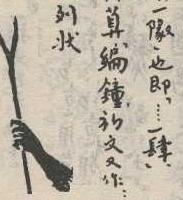 一隊」也即「……一肆」
算編鐘，初文又作……
列狀